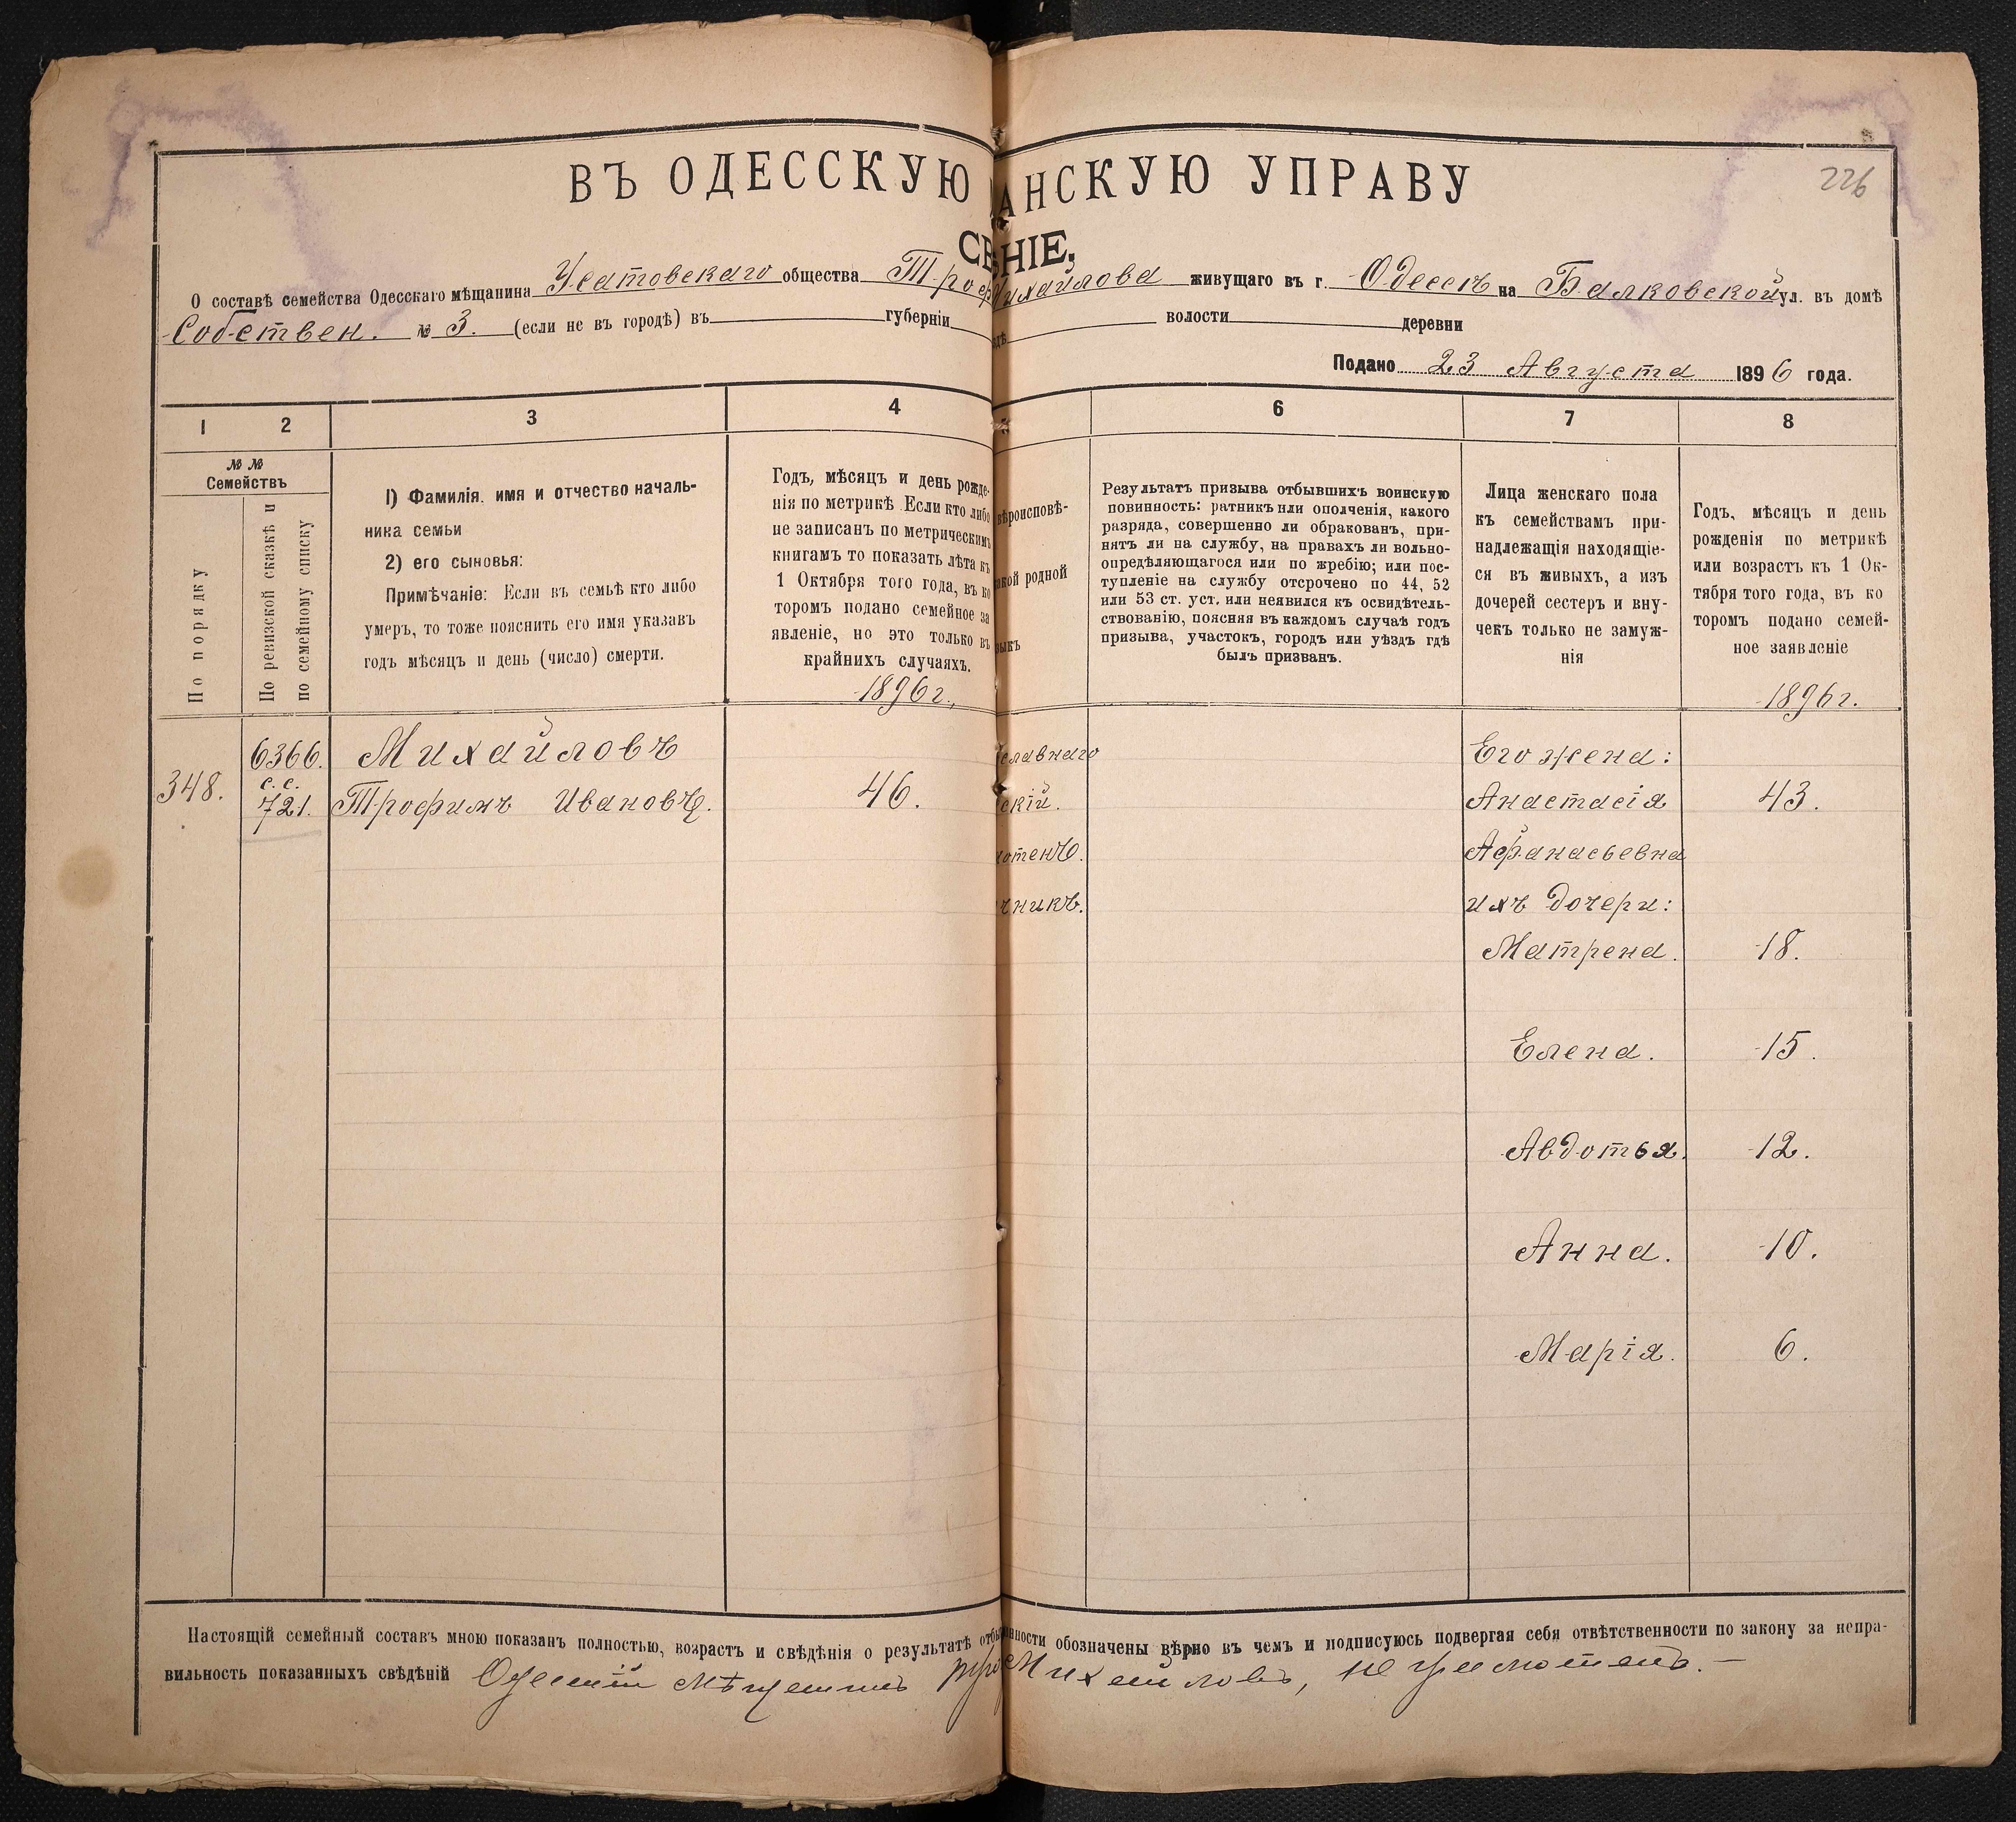 ВЪ ОДЕССКУЮ АНСКУЮ УПРАВУ
226
СВ НІЕ,
О составѣ семейства Одесскаго мѣщанина Усатовскаго общества Троф Михайлова живущаго въ г. Одессѣ на Балковской ул. въ домѣ
Собствен. № 3. (если не въ городѣ) въ губерніи ѣдѣ волости деревни
Подано 23 Августа 1896 года.
1 2 3 4 6 7 8
№ №
Семействъ
По порядку
По ревизской сказкѣ и
по семейному списку
1) Фамилія. имя и отчество началь-
ника семьи
2) его сыновья:
Примѣчаніе: Если въ семьѣ кто либо
умеръ, то тоже пояснить его имя указавъ
годъ мѣсяцъ и день (число) смерти.
Годъ, мѣсяцъ и день рожде-
нія по метрикѣ Если кто либо
не записанъ по метрическимъ
книгамъ то показать лѣта къ
1 Октября того года, въ ко
торомъ подано семейное за
явленіе, но это только въ
крайнихъ случаяхъ.
1896 г.
вѣроисповѣ-
акой родной
зыкъ
Результатъ призыва отбывшихъ воинскую
повинность: ратникъ или ополченія, какого
разряда, совершенно ли обракованъ, при-
нятъ ли на службу, на правахъ ли вольно-
опредѣляющагося или по жребію; или пос-
тупленіе на службу отсрочено по 44, 52
или 53 ст. уст. или неявился къ освидѣтель-
ствованію, поясняя въ каждомъ случаѣ годъ
призыва, участокъ, городъ или уѣздъ гдѣ
былъ призванъ.
Лица женскаго пола
къ семействамъ при-
надлежащія находящіе-
ся въ живыхъ, а изъ
дочерей сестеръ и вну-
чекъ только не замуж-
нія
Годъ, мѣсяцъ и день
рожденія по метрикѣ
или возрастъ къ 1 Ок-
тября того года, въ ко
торомъ подано семей-
ное заявленіе
1896 г.
348.
6366.
с. с.
721.
Михайловъ
Трофимъ Ивановъ.
46.
славнаго
скій.
отенъ.
никъ.
Его жена:
Анастасія 43.
Афанасьевна
ихъ дочери:
Матрена. 18.
Елена. 15.
Авдотья. 12.
Анна. 10.
Марія. 6.
Настоящій семейный составъ мною показанъ полностью, возрастъ и свѣдѣнія о результатѣ отбы нности обозначены вѣрно въ чемъ и подписуюсь подвергая себя отвѣтственности по закону за непра-
вильность показанныхъ свѣдѣній Одесскій Мѣщанинъ Михайловъ, неграмотенъ.